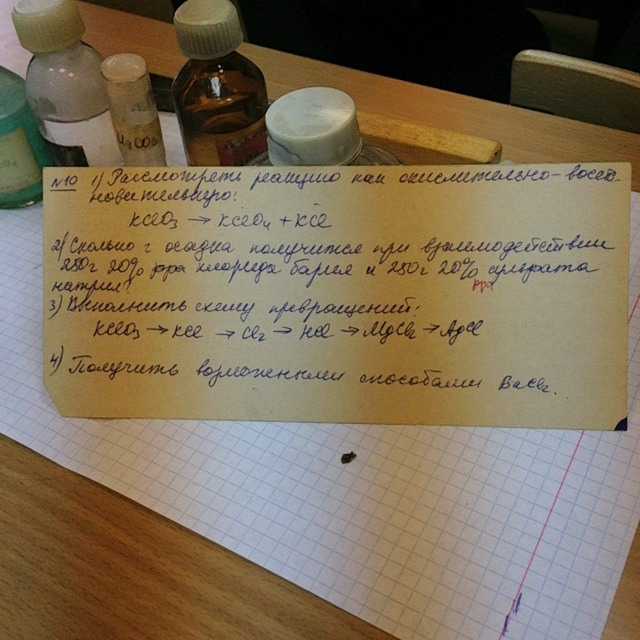 №10 1) Рассмотреть реакцию как окислительно-восста-
новительную:
KClO₃ → KClO₄ + KCl
2) Сколько г осадка получится при взаимодействии
250г 20% рра хлорида бария и 250г 20% сульфата
рра
натрия?
3) Выполнить схему превращений:
KClO₃ → KCl → Cl₂ → HCl → MgCl₂ → AgCl
4) Получить возможными способами BaCl₂.